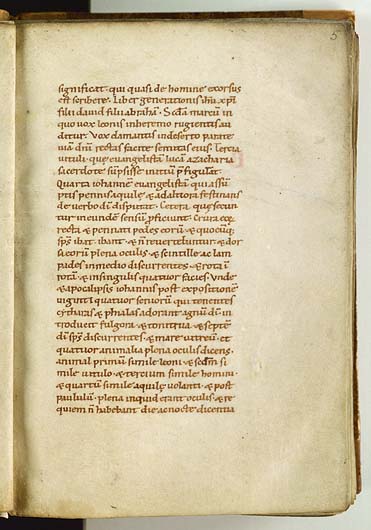 5
significat. qui quasi de homine exorsus
est scribere. Liber generationis ihu xpi
filii david filii abrahā. Scda marcū in
quo vox leonis in heremo rugientis au
ditur. Vox clamantis in deserto parate
viam dnī rectas facite semitas eius. Tercia
vituli. que evangelistā lucā a zacharia
sacerdote sūpsisse initiū pfigurat.
Quarta iohannē evangelistā qui assū
ptis pennis aquilę & ad altiora festinans
de verbo dī disputat. Cetera que secun
tur in eundē sensū pficiunt. Crura eorū
recta & pennati pedes eorū & quocūq;
sps ibat. ibant. & n̄ revertebantur. & dor
sa eorū plena oculis. & scintille ac lam
pades in medio discurrentes. & rota in
rota. & in singulis quatuor facies. Unde
& apocalipsis iohannis post expositionē
viginti quatuor seniorū qui tenentes
cytharas & phialas adorant agnū dī. in
troducit fulgora & tonitrua & septē
dī sps discurrentes. & mare vitreū. et
quatuor animalia plena oculis dicens.
animal primū simile leoni. & scdm si
mile vitulo. & tercium simile homini.
& quartū simile aquilę volanti. & post
paululū. plena inquid erant oculis. & re
quiem n̄ habebant die ac nocte dicentia